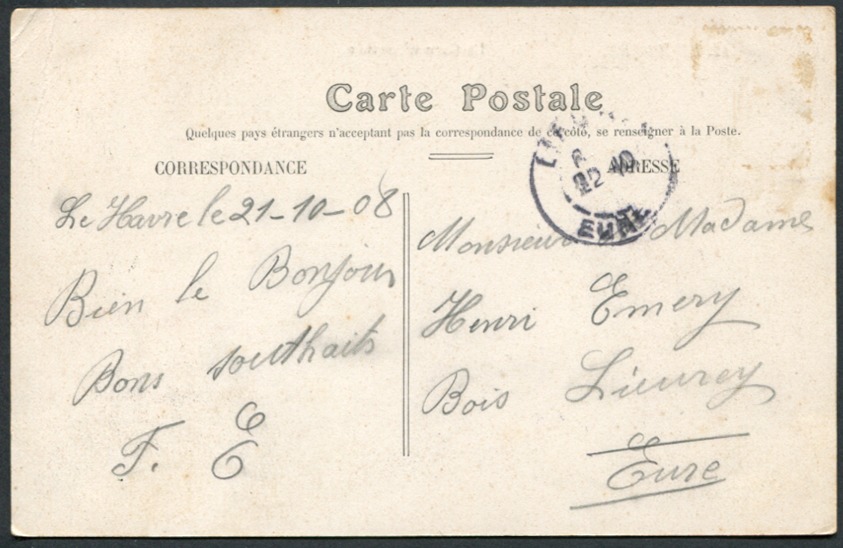 Carte Postale
Quelques pays étrangers n'acceptant pas la correspondance de ce côté, se renseigner à la Poste.
CORRESPONDANCE
Le Havre le 21-10-08
Bien le Bonjour
Bons southaits
F. E
ADRESSE
Monsieur Madame
Henri Emery
Bois Lieurey
Eure
22 10
EURE